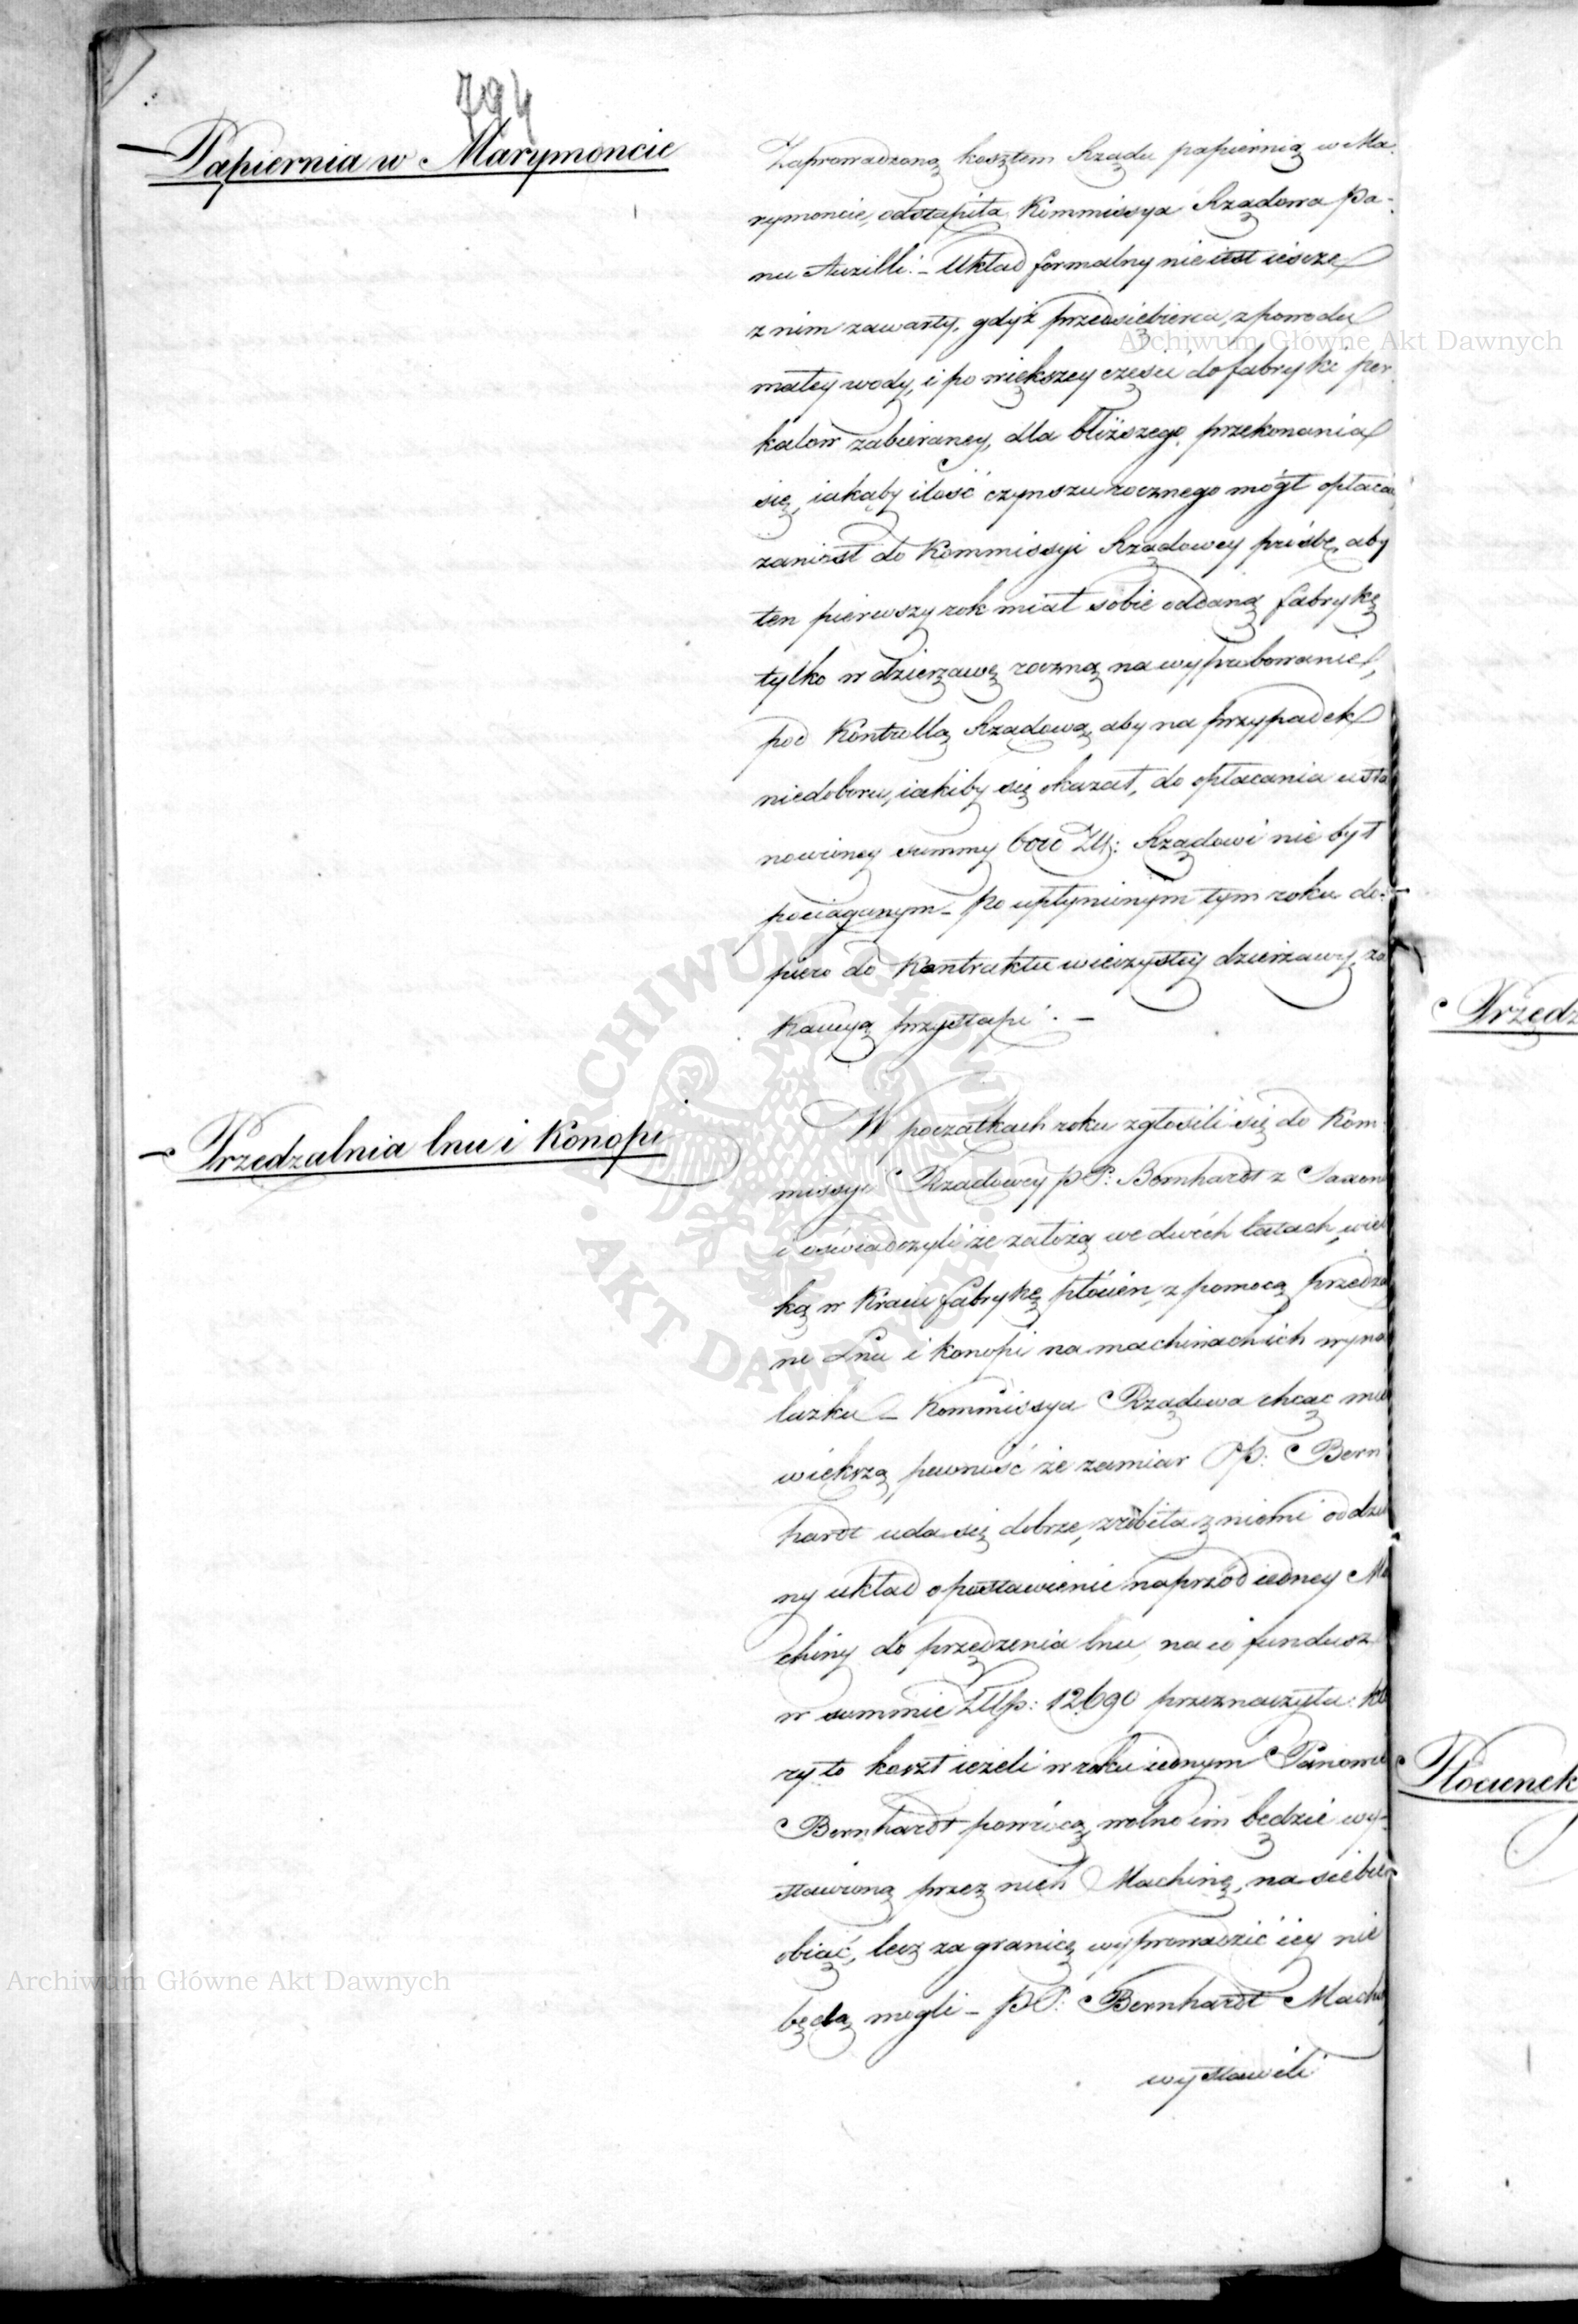 794
Papiernia w Marymoncie
Zaprowadzoną kosztem Rządu papiernią w Ma-
rymoncie, odstąpiła Kommissya Rządowa Pa-
nu Auzilli. – Układ formalny nie iest iescze
z nim zawarty, gdyż przedsiębierca, z powodu
małey wody, i po większey części do fabryki per
kalow zabieraney, dla bliższego przekonania
się, iakąby ilość czynszu rocznego mógł opłacać
zaniosł do Kommissyi Rządowey prośbę, aby
ten pierwszy rok miał sobie oddaną fabrykę
tylko w dzierzawę roczną na wyprobowanie,
pod Kontrollą Rządową, aby na przypadek
niedoboru, iakiby się okazał, do opłacania usta
nowioney summy 6000 Złł: Rządowi nie był
pociąganym – po upłynionym tym roku do-
piero do Kontraktu wieczystey dzierżawy, za
Kaucyą przystąpi. –
Przędzalnia lnu i Konopi
W początkach roku zgłosili się do Kom
missyi Rządowey PP: Bernhardt z Saxonii
i oświadczyli że założą we dwóch latach wiel
ką w Kraiu fabrykę płócien, z pomocą przędza
ne Lnu i konopi na machinach ich wyna
lazku – Kommissya Rządowa chcąc mieć
większą pewność że zamiar PP: Bern
hardt uda się dobrze, zrobiła z niemi oddziel
ny układ o postawienie naprzód iedney Ma
chiny do przędzenia lnu, na co fundusz
w summie Złłp: 12690 przeznaczyła: któ
ry to koszt ieżeli w roku iednym Panowie
Bernhardt powrócą, wolno im będzie wy-
stawioną przez nich Machinę, na siebie
obiąć, lecz za granicę wyprowadzić iey nie
będą mogli – PP: Bernhardt Machi
wystawili
Przędz
Płócienek
Archiwum Główne Akt Dawnych
Archiwum Główne Akt Dawnych
ARCHIWUM GŁÓWNE
AKT DAWNYCH